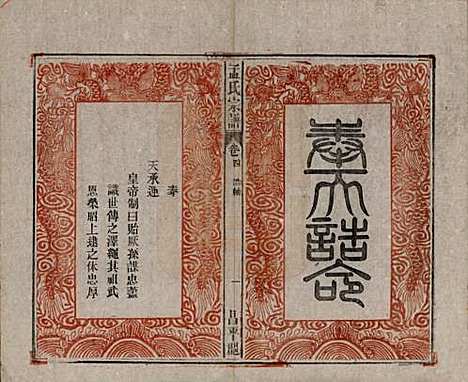 奉天誥命
孟氏宗譜
卷四
誥軸
一
奉
天承運
皇帝制曰貽厥孫謀忠藎
識世傳之澤繩其祖武
恩榮昭上逮之休忠厚